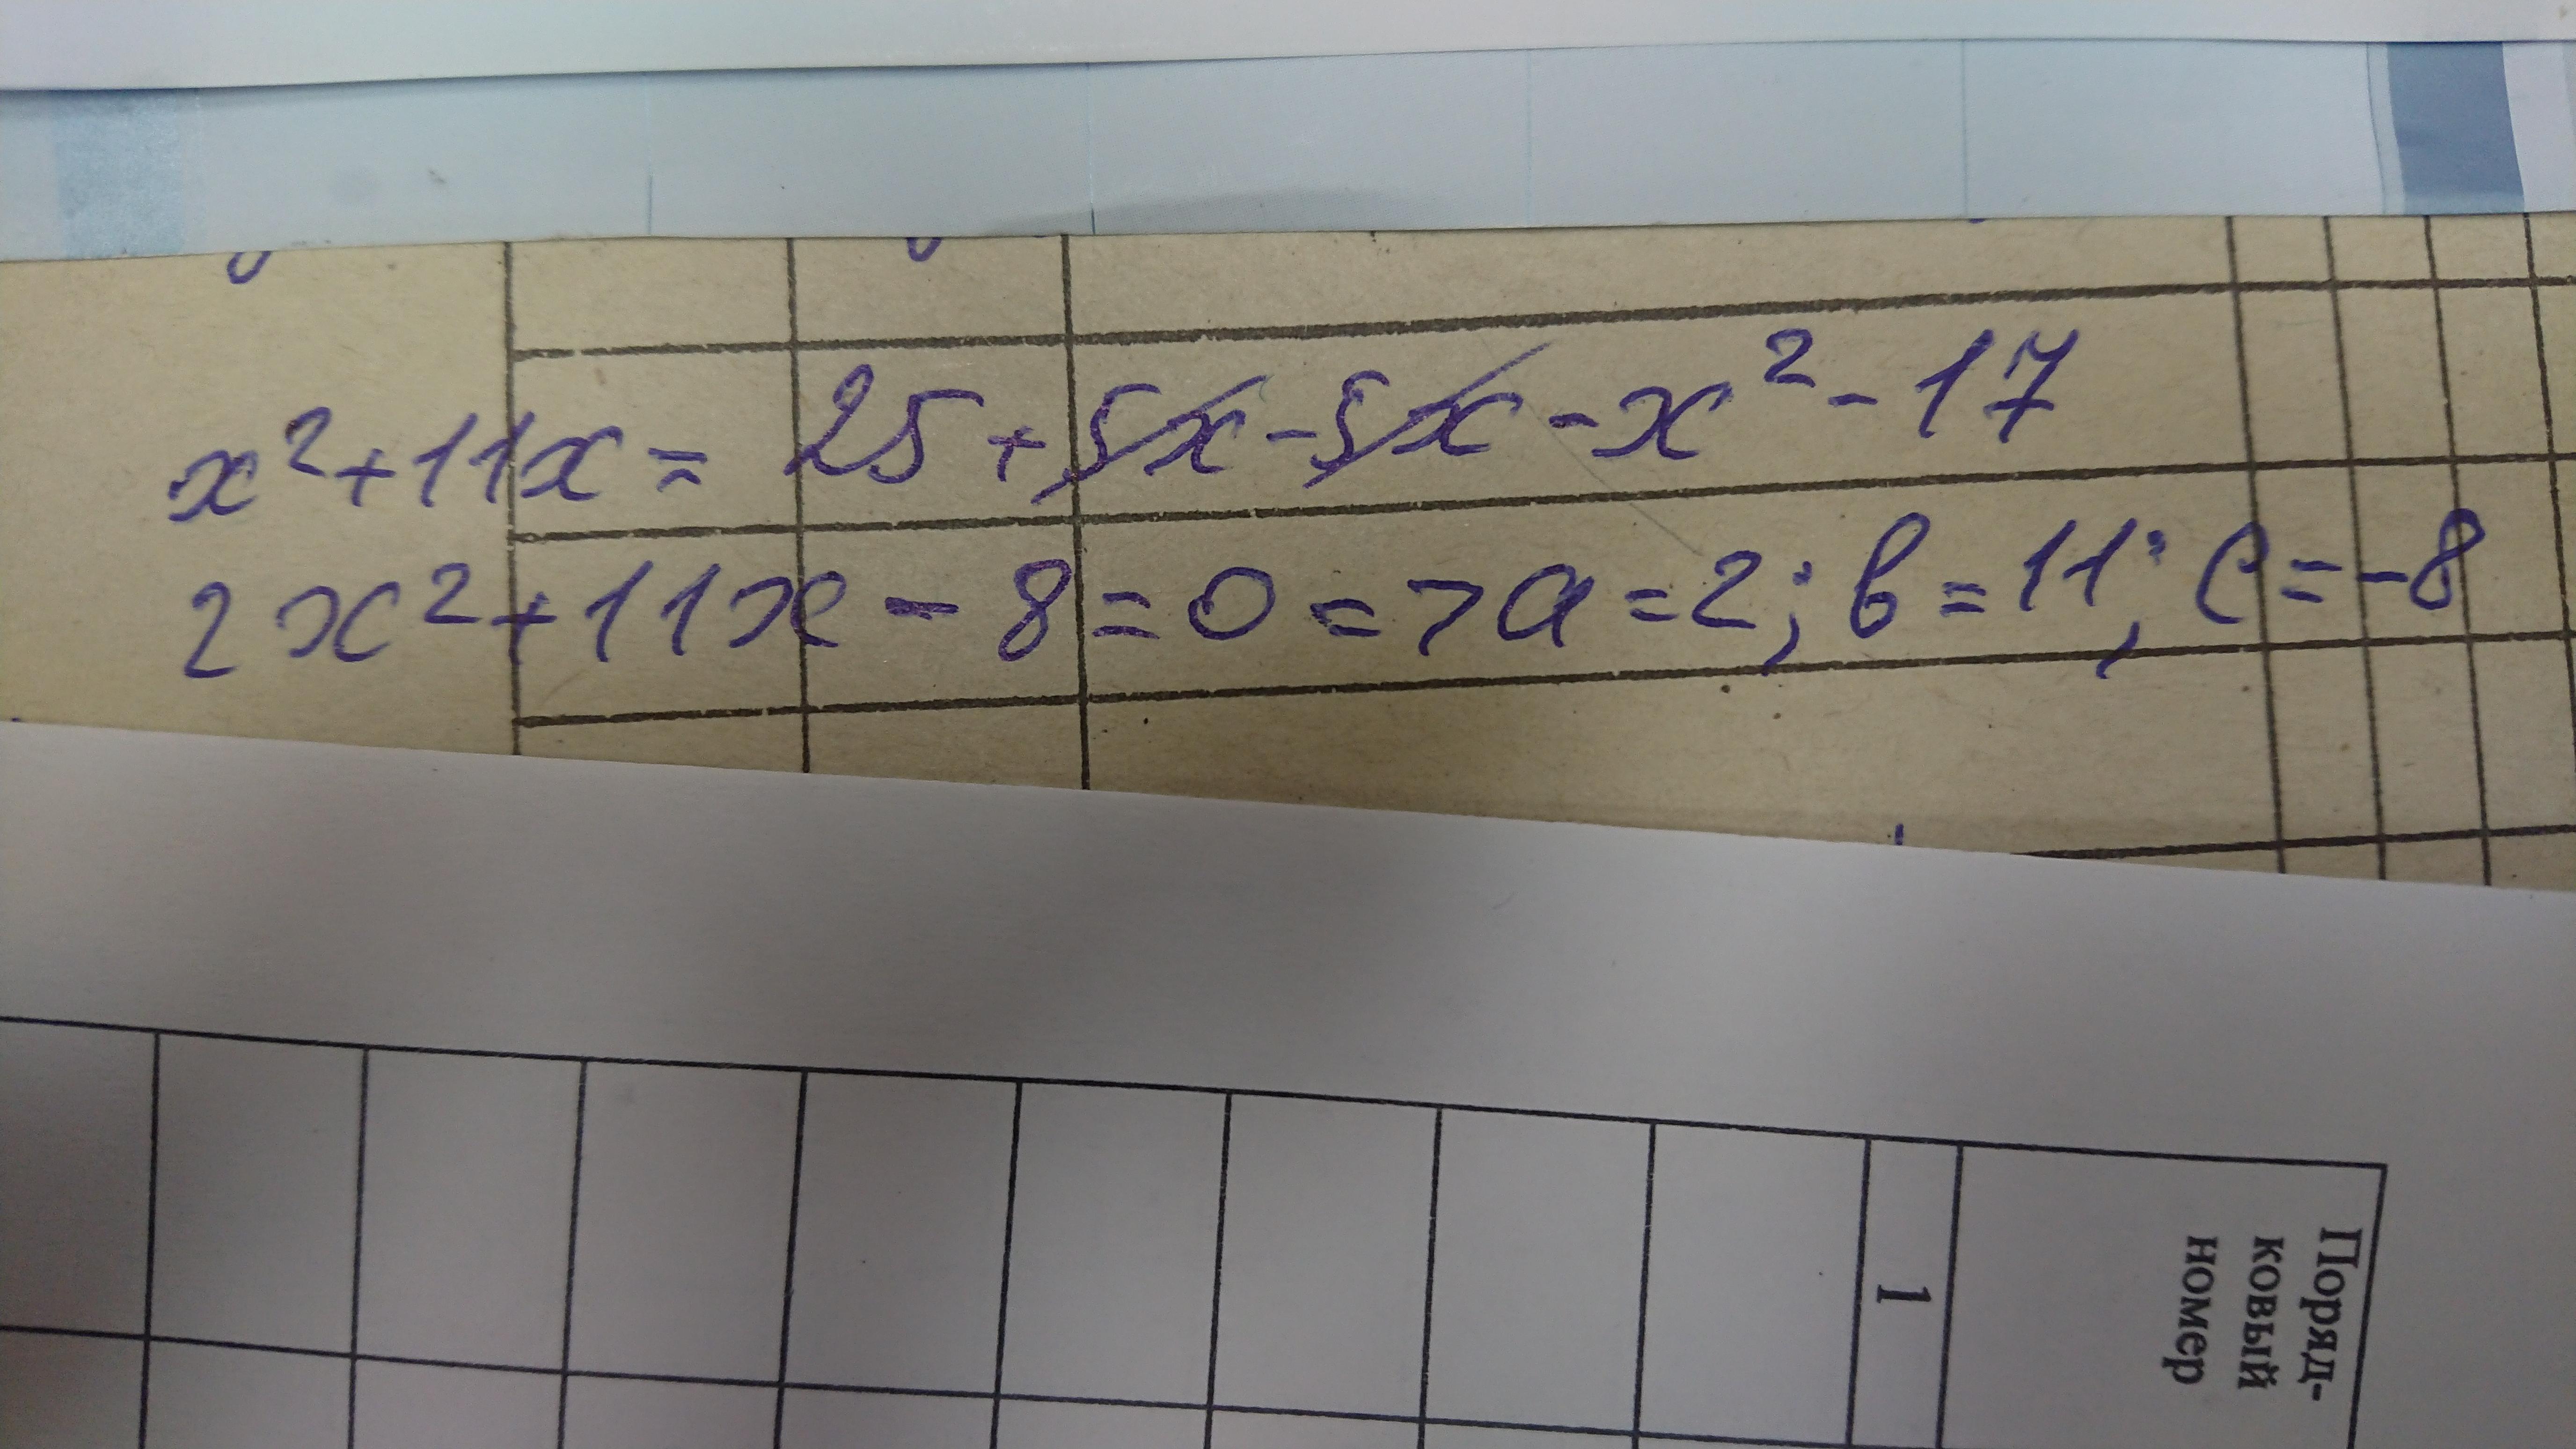 x² + 11x = 25 + 5x - 5x - x² - 17
2x² + 11x - 8 = 0 => a = 2; b = 11; c = -8
Поряд-
ковый
номер
1